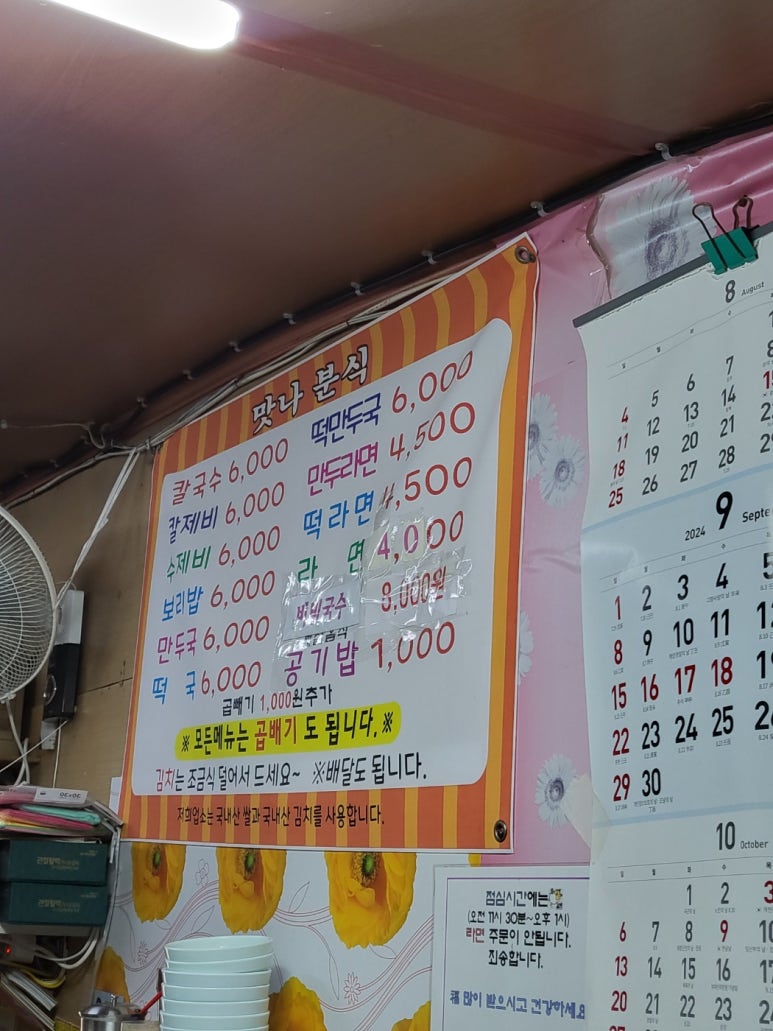 맛나 분식
칼국수 6,000
칼제비 6,000
수제비 6,000
보리밥 6,000
만두국 6,000
떡 국 6,000
떡만두국 6,000
만두라면 4,500
떡라면 4,500
라 면 4,000
비빔국수 8,000원
공기밥 1,000
곱빼기 1,000원추가
※ 모든메뉴는 곱빼기 도 됩니다.※
김치는 조금식 덜어서 드세요~ ※배달도 됩니다.
저희업소는 국내산 쌀과 국내산 김치를 사용합니다.
점심시간에는
(오전 11시 30분~오후 1시)
라면 주문이 안됩니다.
죄송합니다.
많이 받으시고 건강하세요
8 August
7
4 5 6 14
11 12 13 21
18 19 20 28
25 26 27
2024 9
1 2 3 4 5
8 9 10 11
15 16 17 18
22 23 24 25
29 30
10 October
1 2 3
6 7 8 9 10
13 14 15 16
20 21 22 23